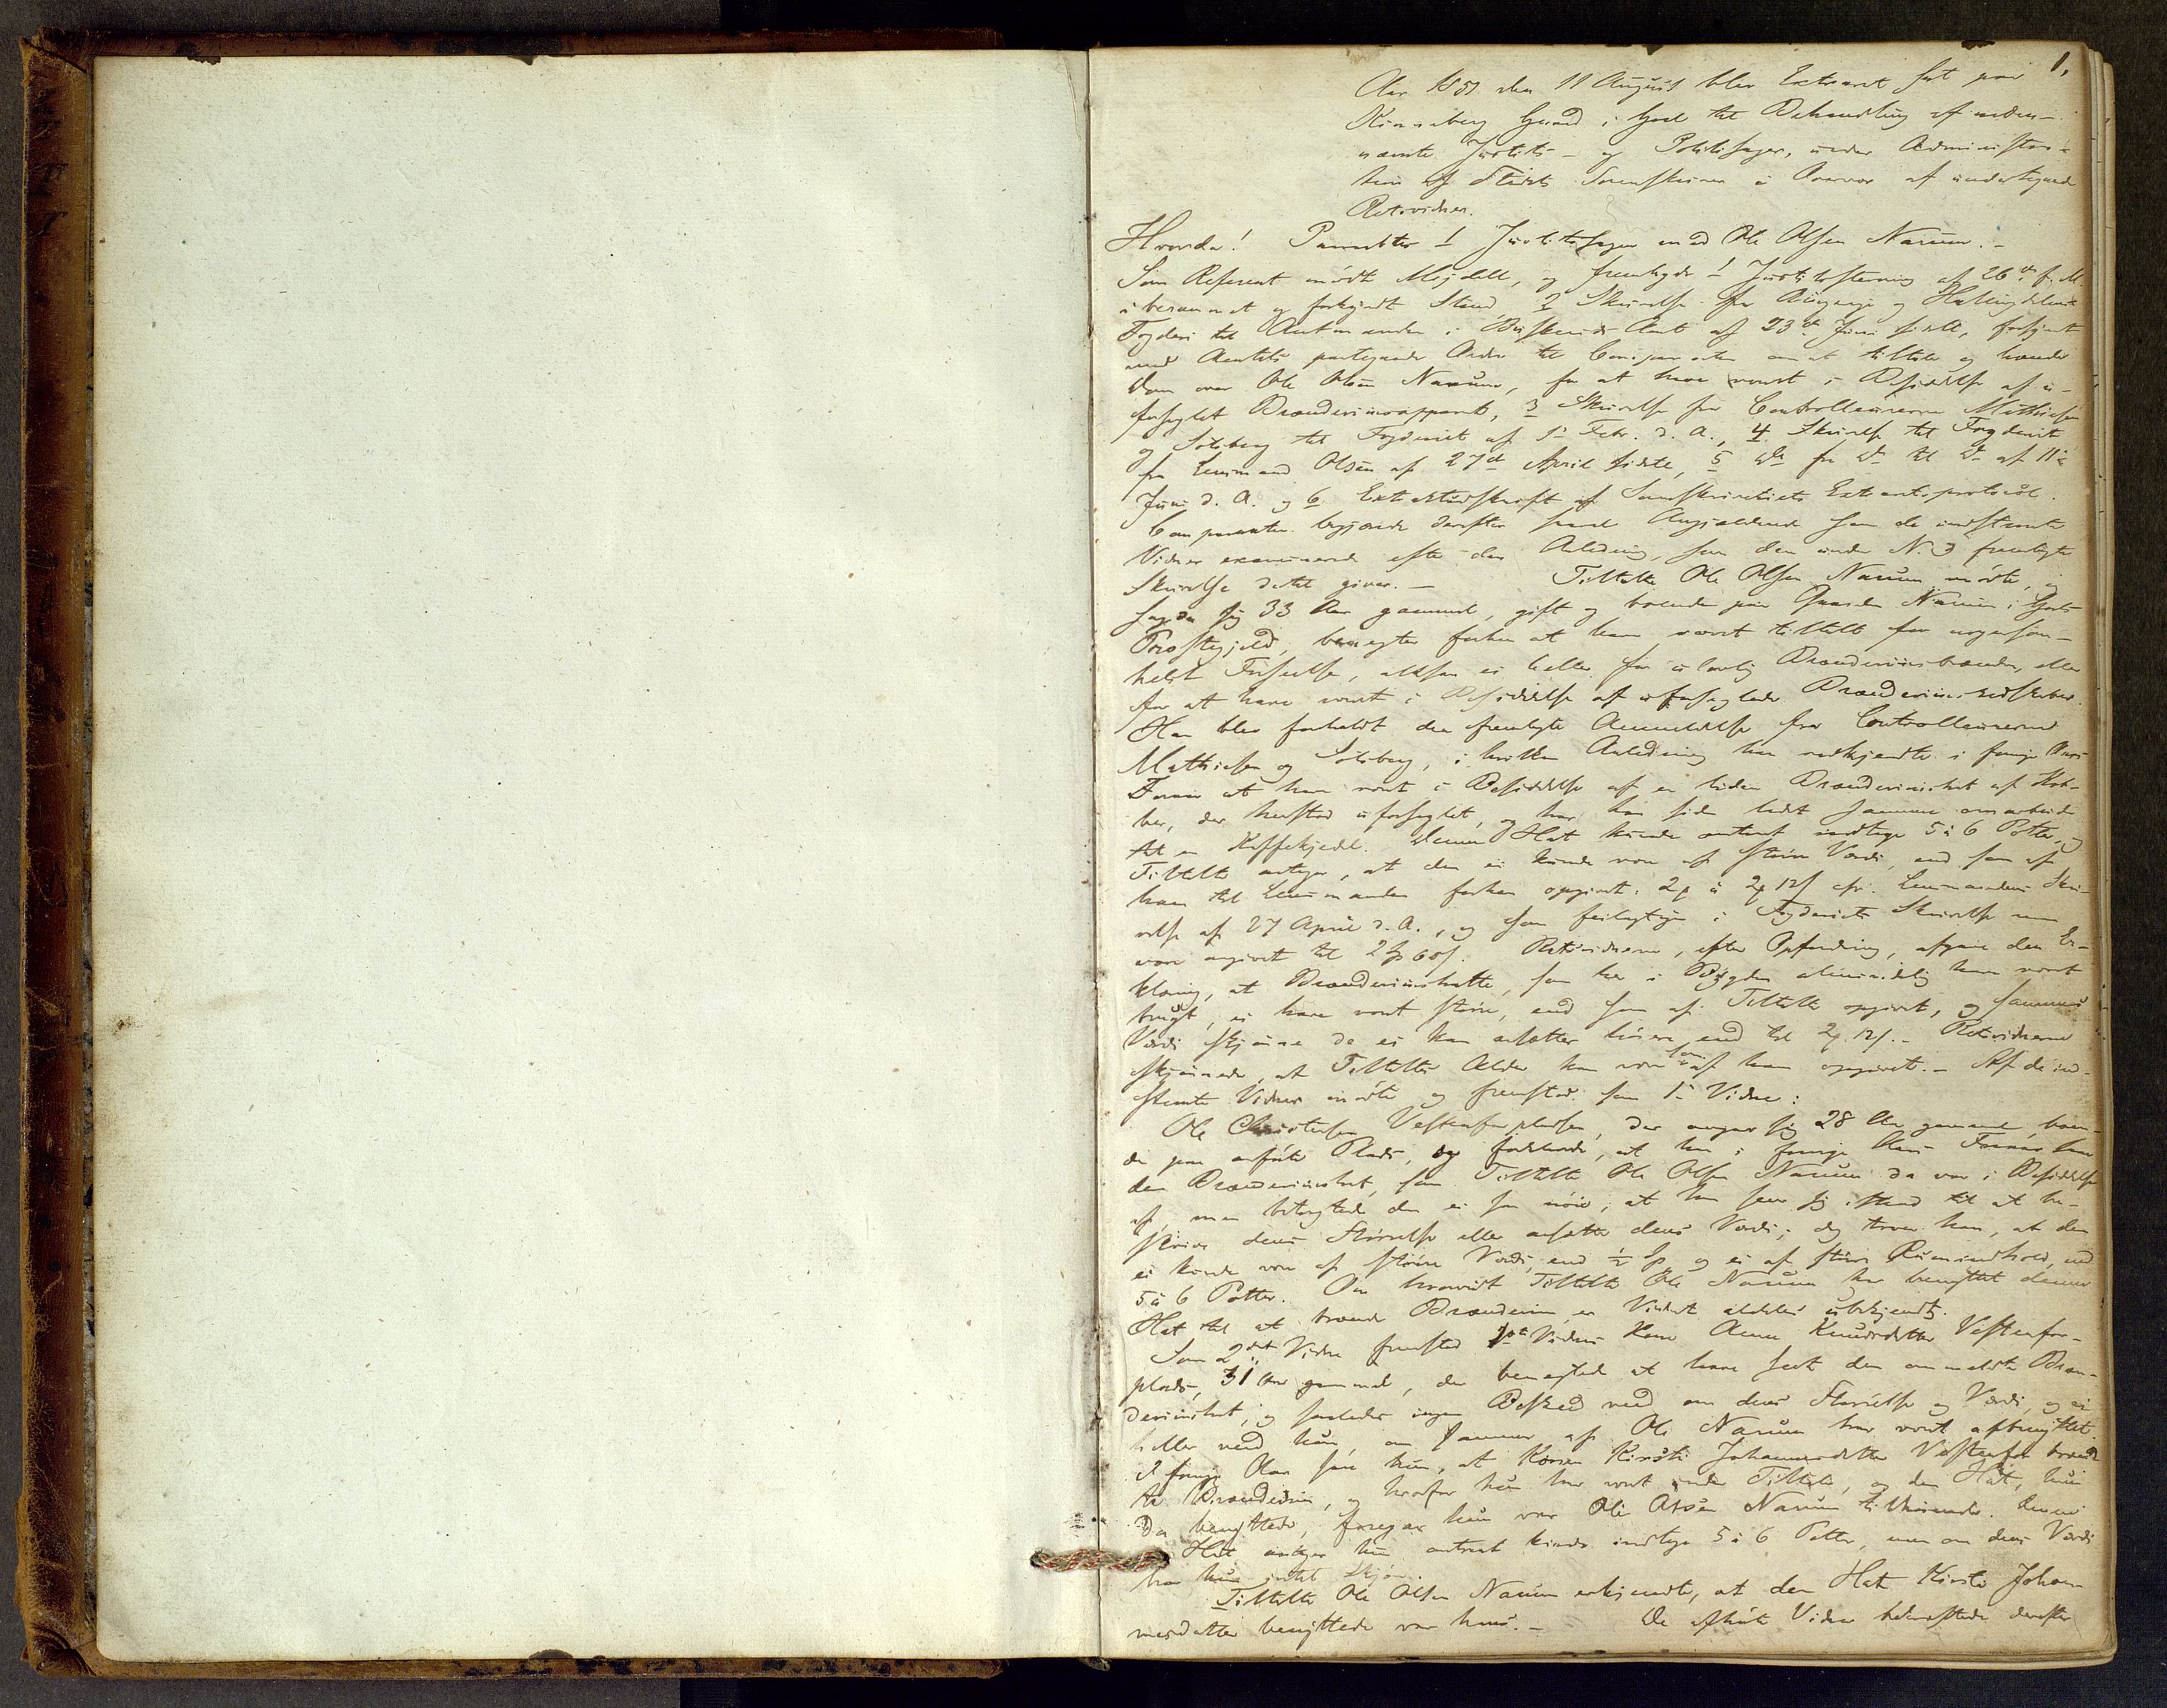 1.
Aar 1851 den 11 August blev Extraret sat paa
Kinneberg Gaard i Goel til Behandling af neden-
nævnte Justits- og Politisager, under Administra-
tion af Stedets Sorenskriver i Overvær af undertegnede
Retsvidner.
Hvorda! Parukter 1 Justitssagen mod Ole Olsen Narum. -
Som Referent mødte Mejdell, og fremlagde 1 Justitsstevning af 26de f. M.
i beramet og forkyndt Stand 2 Skrivelse fra Ringerige og Hallingdalens
Fogderi til Amtmanden i Buskeruds Amt af 23de Juni sidstl, forsynt
med Amtets paategnede Ordre til Comparenten om at tiltale og hænde
Dom over Ole Olsen Narum, for at have været i Besiddelse af u-
forseglet Brænderiapparat, 3 Skrivelse fra Controlleurerne Mathiesen
og Solberg til Fogderiet af 1ste Febr. d. A., 4 Skrivelse til Fogderiet
fra Lensmand Olsen af 27de April sidste, 5 do fra do til do af 11te
Juni d. A. og 6 Extraktudskrift af Sorenskriveriets Extraretsprotocol.
Comparenten begjærede derefter saavel Angjældende som de indstevnte
Vidner examinerede efter den Anledning, som den under No 3 fremlagte
Skrivelse dertil giver. - Tiltalte Ole Olsen Narum mødte, og
sagde sig 33 Aar gammel, gift og boende paa Gaarden Narum i Goels
Præstegjeld, benægter forhen at have været tiltalt for nogensom-
helst Forseelse, altsaa ei heller for ulovlig Brændeviinsbrænden, eller
for at have været i Besiddelse af uforseglede Brændeviinsredskaber.
Han blev foreholdt den fremlagte Anmeldelse fra Controlleurerne
Mathiesen og Solberg, i hvilken Anledning han vedkjendte i forrige Aars
Foraar at have været i Besiddelse af en liden Brændeviinshat af Kob-
ber, der henstod uforseglet, og har han siden ladt samme omarbeide
til en Kaffekjedel. Denne Hat kunde omtrent indtage 5 à 6 Potter, og
Tiltalte antager, at den ei kunde være af større Værdi, end som af
ham til Lensmanden forhen opgivet. 2 à 2 12 cfr. Lensmandens Skri-
velse af 27 April d. A., og som feilagtigen i Fogderiets Skrivelse
være angivet til 2 60 . Retsvidnerne, efter Opfordring, afgave den Er-
klæring, at Brændeviinshatte, som her i Bygden almindelig have været
brugt, ei have været større, end som af Tiltalte opgivet, og sammes
Værdi skjønne de ei kan ansættes høiere, end til 2 12 . - Retsvidnerne
skjønnede, at Tiltaltes Alder kan være som af ham opgivet. - Af de ind-
stevnte Vidner mødte og fremstod som 1ste Vidne:
Ole Christensen Vestenforpladsen, der angav sig 28 Aar gammel, boen-
de paa anførte Plads, og forklarede, at han i forrige Aars Foraar saae
den Brændeviinshat, som Tiltalte Ole Olsen Narum da var i Besiddelse
af, men betragtede den ei saa nøie, at han seer sig istand til at be-
skrive dens Størrelse eller ansætte dens Værdi; dog troer han, at den
ei kunde være af større Værdi, end ½ og ei af større Rumindhold, end
5 à 6 Potter. Om hvorvidt Tiltalte Ole Narum har benyttet denne
Hat til at brænde Brændeviin, er Vidnet aldeles ubekjendt.
Som 2det Vidne fremstod 1ste Vidnes Kone Anne Knudsdatter Vestenfor-
plads, 31 Aar gammel, der benægtede at have seet den ommeldte Bræn-
deviinshat, og saaledes ingen Besked veed om dens Størrelse og Værdi, og ei
heller veed hun, om samme af Ole Narum har været afbenyttet.
I forrige Aar saae hun, at Konen Kirsti Johannesdatter Vestenfor brænd-
te Brændeviin, og hvorfor hun har været under Tiltale, og den Hat, hun
da benyttede, foregav hun var Ole Olsen Narum tilhørende. Denne
Hat antager hun omtrent kunde indtage 5 à 6 Potter, men om dens Værdi
har hun intet Skjøn.
Tiltalte Ole Olsen Narum erkjendte, at den Hat Kirsti Johan-
nesdatter benyttede var hans. - De afhørte Vidner bekræftede derefter